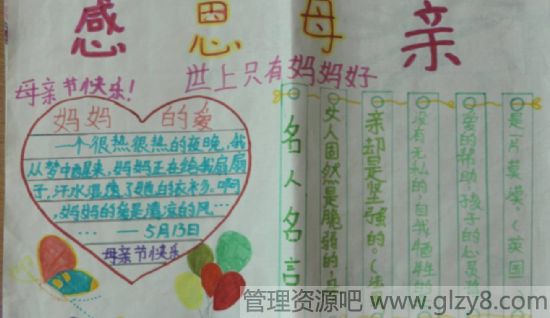 感恩母亲
母亲节快乐!
世上只有妈妈好
妈妈的爱
一个很热很热的夜晚,我
从梦中醒来,妈妈正在给我扇扇
子,汗水湿透了她的衣衫。啊,
妈妈的爱是清凉的风……
……——5月13日
母亲节快乐
名人名言
女人固然是脆弱的,母
亲却是坚强的。(法
没有无私的,自我牺牲的
爱的帮助,孩子的心灵
是一片荒漠。(英国
管理资源吧 www.glzy8.com